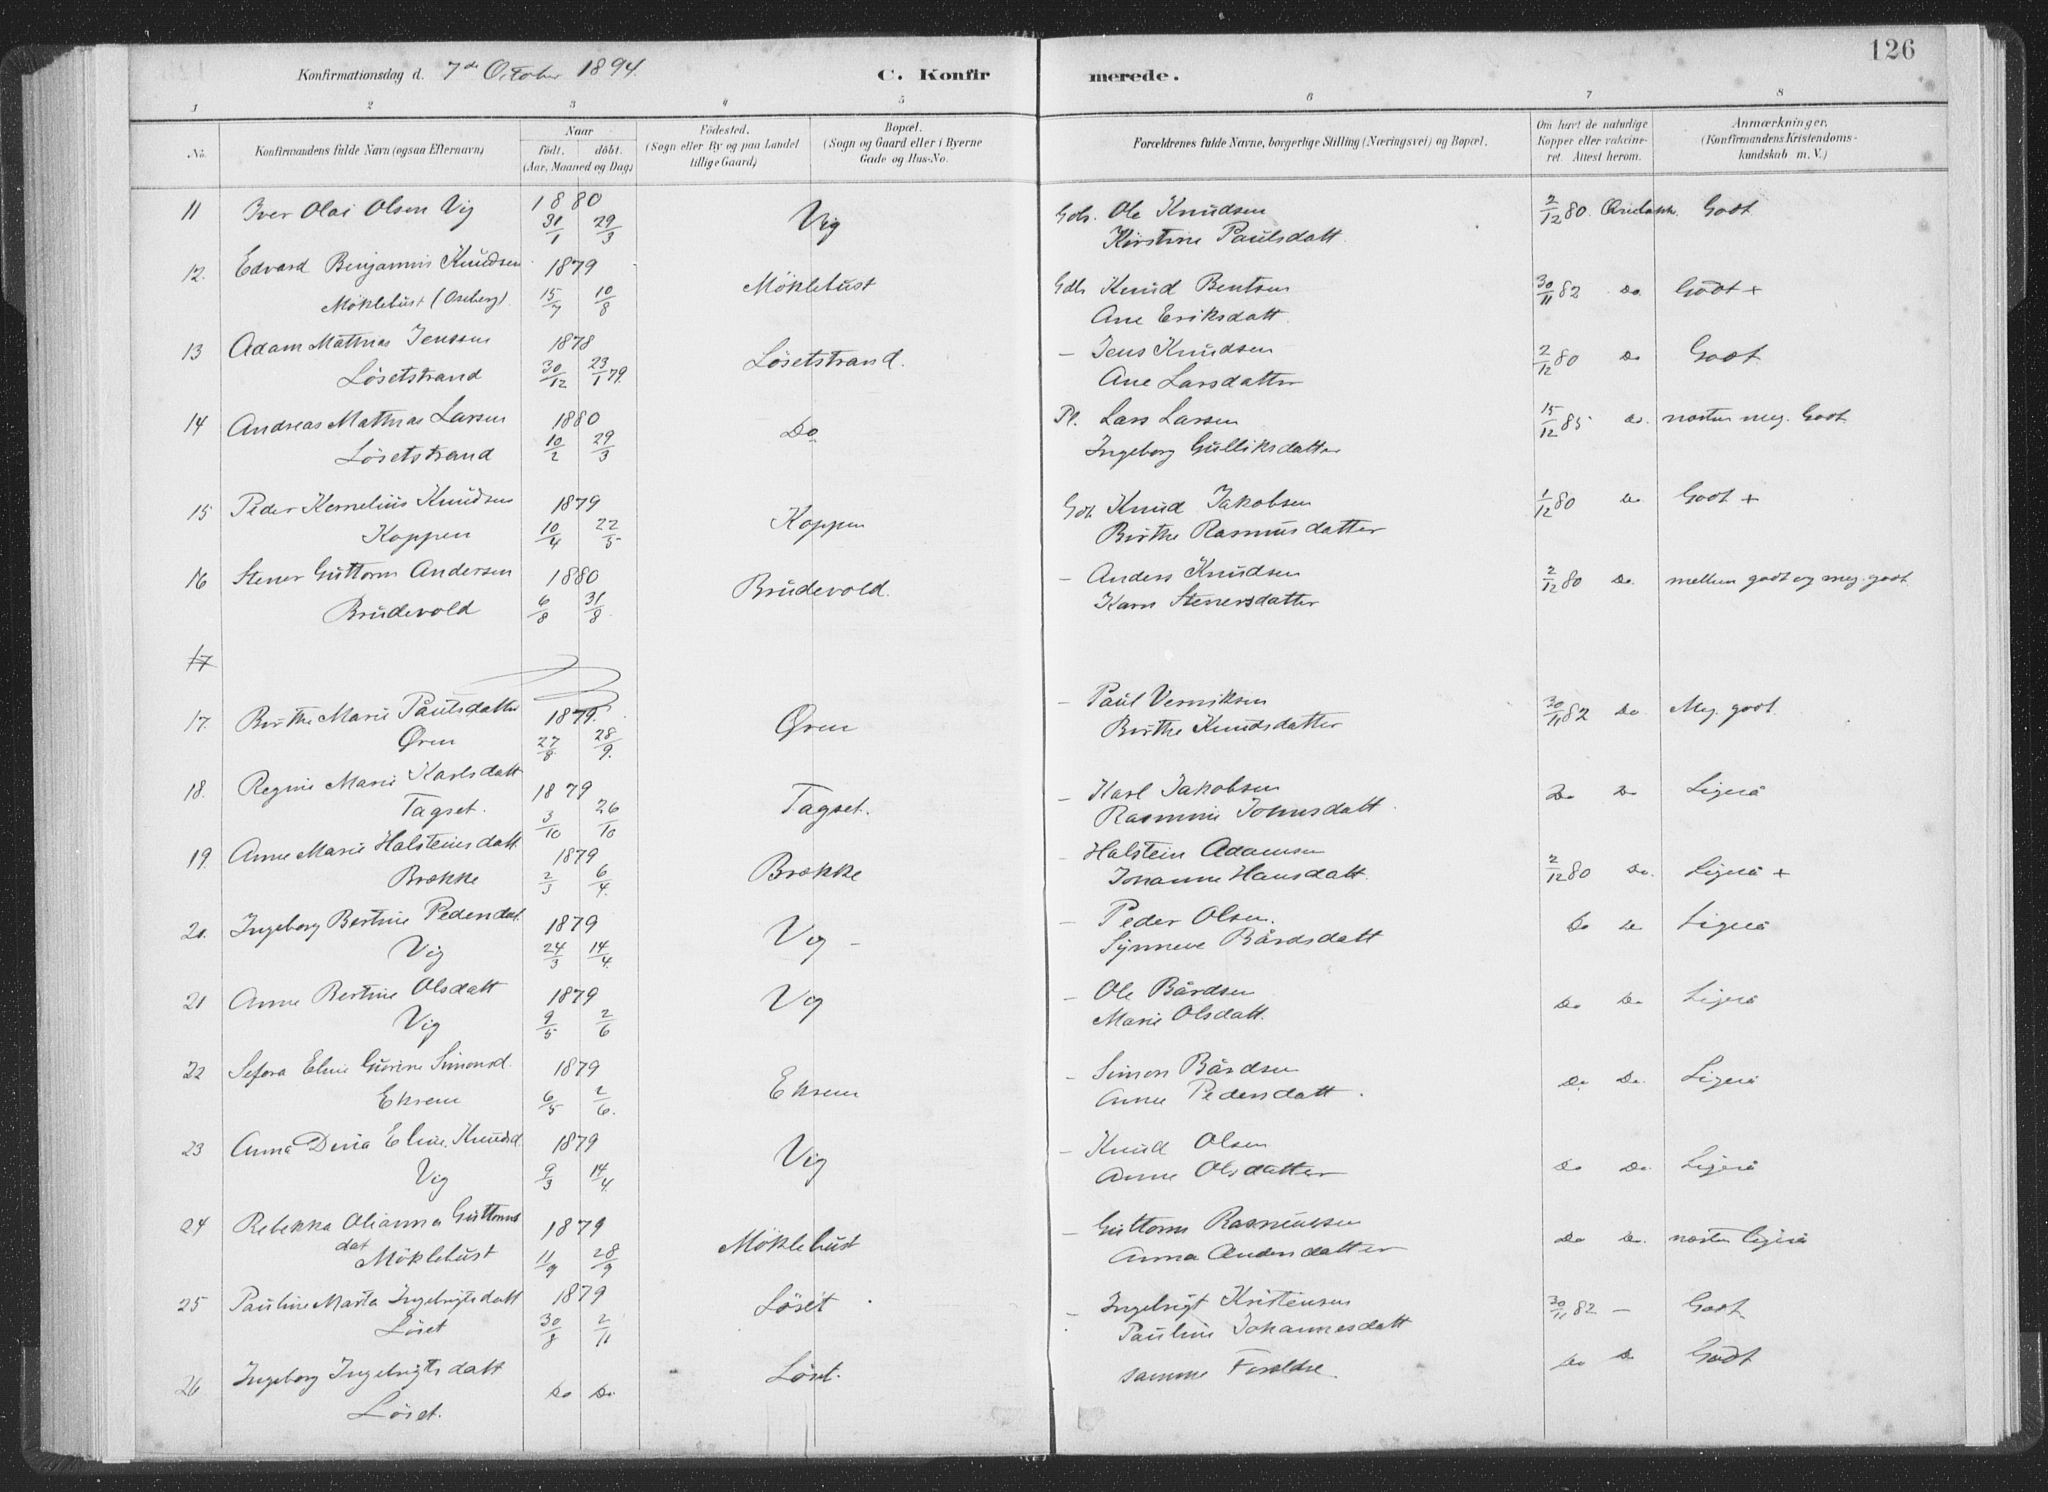 126
Konfirmationsdag d. 7de October 1894. C. Konfirmerede.
1 2 3 4 5 6 7 8
No. Konfirmandens fulde Navn (ogsaa Efternavn) Naar født. døbt. (Aar, Maaned og Dag) Fødested. (Sogn eller By og paa Landet tillige Gaard) Bopæl. (Sogn og Gaard eller i Byerne Gade og Hus-No. Forældrenes fulde Navne, borgerlige Stilling (Næringsvei) og Bopæl. Om havt de naturlige Kopper eller vaksineret. Attest herom. Anmærkninger, (Konfirmandens Kristendomskundskab m. V.)
11 Iver Olai Olsen Vig 1880 Vig Gdb. Ole Knudsen 2/12 80 Godt
31/1 29/3 Kirstine Paulsdatt.
12. Edvard Benjamin Knudsen 1879 Möklebust Gdb Knud Bentsen 30/11 82 Do Godt +
Möklebust (Aseberg). 15/7 10/8 Ane Eriksdatt.
13 Adam Mathias Jenssen 1878 Løsetstrand. - Jens Knudsen 2/12 80 Do Godt
Løsetstrand 30/12 23/1 79. Ane Larsdatter
14 Andreas Mathias Larsen 1880 Do Pl. Lars Larsen 15/12 85 do. næsten meg. Godt
Løsetstrand 10/2 29/3 Ingeborg Gulliksdatter
15 Peder Kornelius Knudsen 1879 Koppen Gdb Knud Jakobsen 1/12 80 Do Godt +
Koppen 10/4 22/5 Birthe Rasmusdatter
16 Stener Guttorm Andersen 1880 Brudevold. - Anders Knudsen 2/12 80 Do. mellem godt og meg. godt
Brudevold 6/8 31/8 Karn Stenersdatter
17
17. Birthe Marie Paulsdatter 1879. Øren - Paul Verniksen 30/11 82 Do Meg. godt
Øren 27/8 28/9. Birthe Knudsdatter
18. Regine Marie Karlsdatt 1879 Tagset. - Karl Jakobsen Do Do Ligesaa
Tagset. 3/10 26/10 Rasmine Johnsdatt.
19. Anne Marie Halsteinsdatt. 1879 Brække - Halstein Adamsen 2/12 80 Do. Ligesaa +
Brække 2/3 6/4. Johanne Hansdatt.
20. Ingeborg Bertine Pedersdat. 1879 Vig - - Peder Olsen. Do Do Ligesaa
Vig 24/3 14/4. Synneve Bårdsdatt
21 Anne Bertine Olsdatt 1879 Vig - Ole Bårdsen Do Do Ligesaa
Vig 9/5 2/6 Marie Olsdatt.
22 Sefora Eline Gurine Simonsd. 1879 Ekrem - Simon Bårdsen Do Do. Ligesaa
Ekrem 6/5 2/6. Anne Pedersdatt.
23 Anna Dina Eline Knudsd. 1879 Vig - Knud Olsen Do Do. Ligesaa
Vig 9/3 14/4. Anne Olsdatter
24 Rebekka Olianna Guttorms 1879 Möklebust - Guttorm Rasmussen Do Do. næsten Ligesaa
dat Möklebust 11/9 28/9 Anna Andersdatter
25 Pauline Marta Ingebrigtsdatt 1879 Löset - Ingebrigt Kristensen 30/11 82 - Godt
Löset 30/8 2/11 Pauline Johannesdatt
26 Ingeborg Ingebrigtsdatt Do Do. Löset. samme Forældre Do Do Godt
Löset.